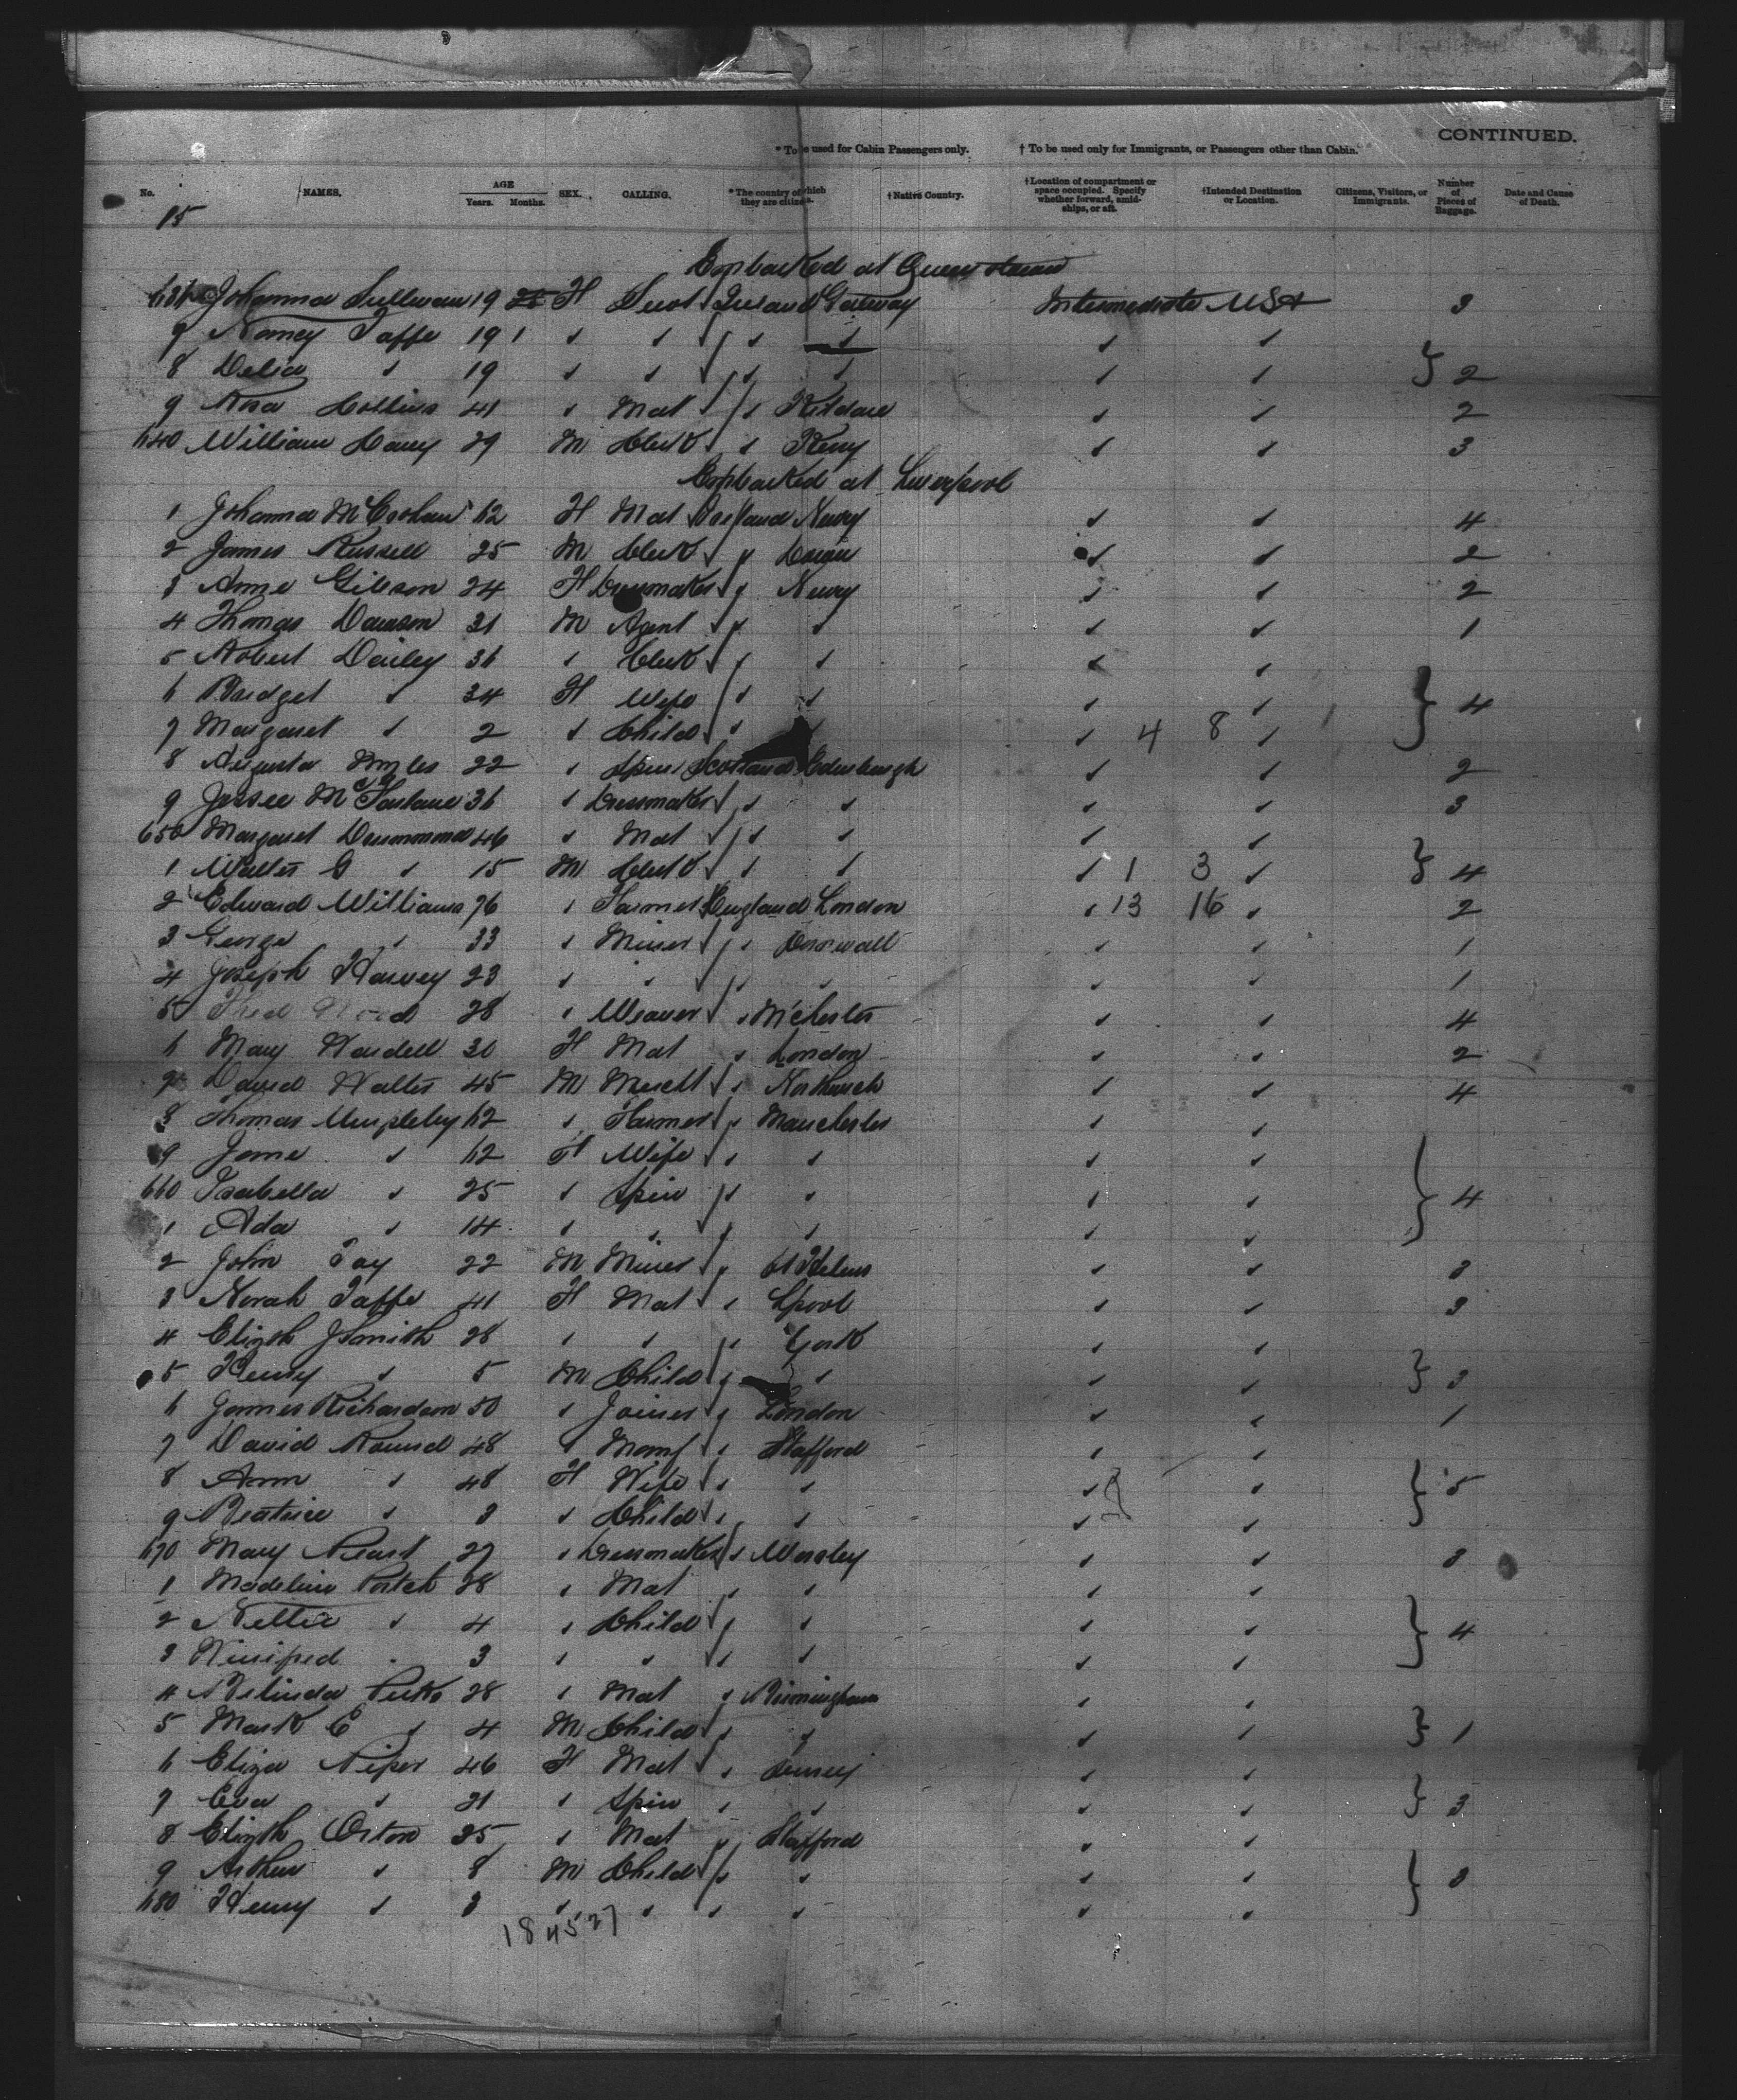 CONTINUED.
* To be used for Cabin Passengers only. † To be used only for Immigrants, or Passengers other than Cabin.
No. NAMES. AGE Years. Months. SEX. CALLING. * The country of which they are citizens. † Native Country. † Location of compartment or space occupied. Specify whether forward, amidships, or aft. † Intended Destination or Location. Citizens, Visitors, or Immigrants. Number of Pieces of Baggage. Date and Cause of Death.
15
Embarked at Queenstown
Johanna Sullivan 19 F Servt Ireland Galway Intermediate USA 3
Taffe 19 1 ✓ ✓ ✓ ✓ ✓ ✓
8 Delia ✓ 19 ✓ ✓ ✓ ✓ ✓ ✓ } 2
9 Rosa Collins 41 ✓ Mat ✓ Kildare ✓ ✓ 2
640 William Carey 29 M Clerk ✓ Kerry ✓ ✓ 3
Embarked at Liverpool
1 Johanna 62 F Mat Ireland Newry ✓ ✓ 4
2 James Russell 25 M Clerk ✓ ✓ ✓ 2
3 Anne Gibson 24 F Dressmaker ✓ Newry ✓ ✓ 2
4 Thomas Dawson 31 M Agent ✓ ✓ ✓ ✓ 1
5 Robert Dailey 36 ✓ Clerk ✓ ✓ ✓ ✓
6 Bridget ✓ 34 F Wife ✓ ✓ ✓ ✓ } 4
7 Margaret ✓ 2 ✓ Child ✓ ✓ ✓ 4 8 ✓
8 Augusta Myles 22 ✓ Spin Scotland Edinburgh ✓ ✓ 2
9 Jessee McFarlane 36 ✓ Dressmaker ✓ ✓ ✓ ✓ 3
650 Margaret Drummond 46 ✓ Mat ✓ ✓ ✓ ✓
1 Walter G ✓ 15 M Clerk ✓ ✓ ✓ 1 3 ✓ } 4
2 Edward Williams 76 ✓ Farmer England London ✓ 13 16 ✓ 2
3 George ✓ 33 ✓ Miner ✓ Cornwall ✓ ✓ 1
4 Joseph Harvey 23 ✓ ✓ ✓ ✓ ✓ ✓ 1
5 28 ✓ Weaver ✓ M'chester ✓ ✓ 4
6 Mary Wardell 30 F Mat ✓ London ✓ ✓ 2
7 David Walter 45 M Mercht ✓ ✓ ✓ 4
8 Thomas Umpleby 62 ✓ Farmer ✓ Manchester ✓ ✓
9 Jane ✓ 62 F Wife ✓ ✓ ✓ ✓
660 Isabella ✓ 25 ✓ Spin ✓ ✓ ✓ ✓ } 4
1 Ada ✓ 14 ✓ ✓ ✓ ✓ ✓ ✓
2 John 22 M Miner ✓ St Helens ✓ ✓ 3
3 Norah Taffe 41 F Mat ✓ Lpool ✓ ✓ 3
4 Elizth J Smith 28 ✓ ✓ ✓ York ✓ ✓
5 Henry ✓ 5 M Child ✓ ✓ ✓ ✓ } 3
6 James Richardson 50 ✓ Joiner ✓ London ✓ ✓ 1
7 David Round 48 ✓ Manf ✓ Stafford ✓ ✓
8 Ann ✓ 48 F Wife ✓ ✓ ✓ ✓ } 5
9 Beatrice ✓ 3 ✓ Child ✓ ✓ ✓ ✓
670 Mary 27 ✓ Dressmaker ✓ Worsley ✓ ✓ 3
1 Madeline Portch 28 ✓ Mat ✓ ✓ ✓ ✓
2 Nellie ✓ 4 ✓ Child ✓ ✓ ✓ ✓ } 4
3 Winifred ✓ 3 ✓ ✓ ✓ ✓ ✓ ✓
4 Belinda 28 ✓ Mat ✓ Birmingham ✓ ✓
5 Mark E ✓ 4 M Child ✓ ✓ ✓ ✓ } 1
6 Eliza 46 F Mat ✓ ✓ ✓
7 Eva ✓ 21 ✓ Spin ✓ ✓ ✓ ✓ } 3
8 Elizth Orton 35 ✓ Mat ✓ Stafford ✓ ✓
9 Arthur ✓ 8 M Child ✓ ✓ ✓ ✓ } 3
680 Henry ✓ 3 ✓ ✓ ✓ ✓ ✓ ✓
184527